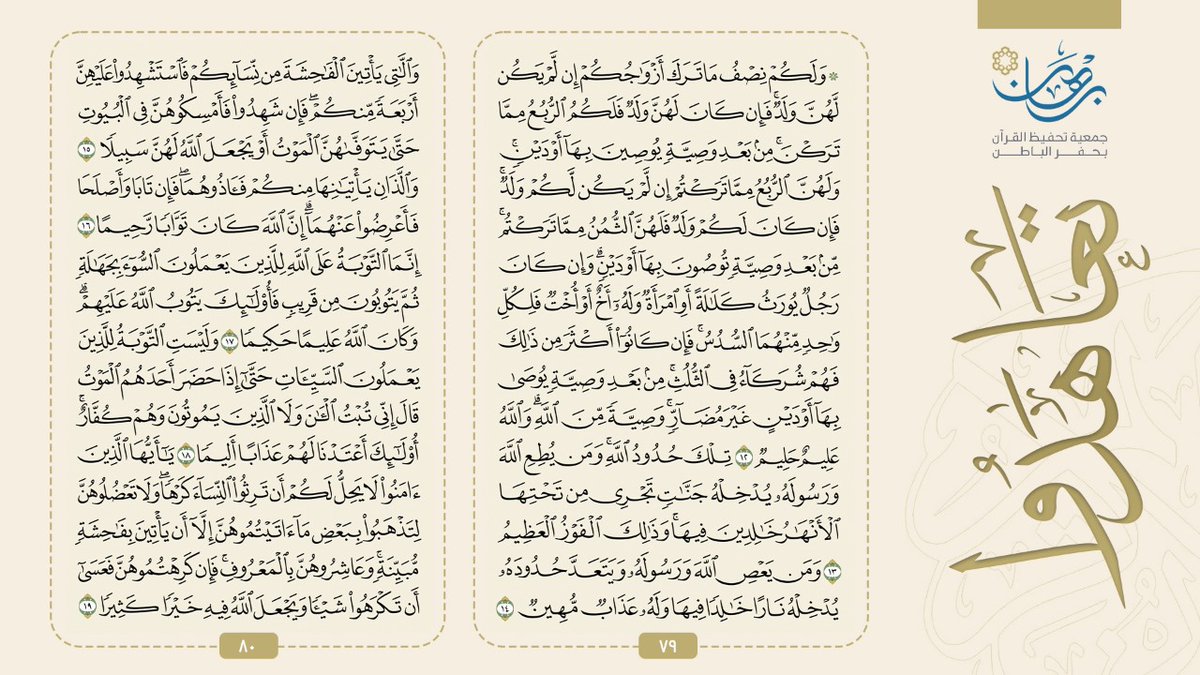 برهان
جمعية تحفيظ القرآن
بحفر الباطن
تعاهدوا
۞ وَلَكُمْ نِصْفُ مَا تَرَكَ أَزْوَٰجُكُمْ إِن لَّمْ يَكُن
لَّهُنَّ وَلَدٌۚ فَإِن كَانَ لَهُنَّ وَلَدٌ فَلَكُمُ ٱلرُّبُعُ مِمَّا
تَرَكْنَۚ مِنۢ بَعْدِ وَصِيَّةٍ يُوصِينَ بِهَآ أَوْ دَيْنٍۚ
وَلَهُنَّ ٱلرُّبُعُ مِمَّا تَرَكْتُمْ إِن لَّمْ يَكُن لَّكُمْ وَلَدٌۚ
فَإِن كَانَ لَكُمْ وَلَدٌ فَلَهُنَّ ٱلثُّمُنُ مِمَّا تَرَكْتُمۚ
مِّنۢ بَعْدِ وَصِيَّةٍ تُوصُونَ بِهَآ أَوْ دَيْنٍۗ وَإِن كَانَ
رَجُلٌ يُورَثُ كَلَٰلَةً أَوِ ٱمْرَأَةٌ وَلَهُۥٓ أَخٌ أَوْ أُخْتٌ فَلِكُلِّ
وَٰحِدٍ مِّنْهُمَا ٱلسُّدُسُۚ فَإِن كَانُوٓا۟ أَكْثَرَ مِن ذَٰلِكَ
فَهُمْ شُرَكَآءُ فِى ٱلثُّلُثِۚ مِنۢ بَعْدِ وَصِيَّةٍ يُوصَىٰ
بِهَآ أَوْ دَيْنٍ غَيْرَ مُضَآرٍّۚ وَصِيَّةً مِّنَ ٱللَّهِۗ وَٱللَّهُ
عَلِيمٌ حَلِيمٌ ١٢ تِلْكَ حُدُودُ ٱللَّهِۚ وَمَن يُطِعِ ٱللَّهَ
وَرَسُولَهُۥ يُدْخِلْهُ جَنَّٰتٍ تَجْرِى مِن تَحْتِهَا
ٱلْأَنْهَٰرُ خَٰلِدِينَ فِيهَاۚ وَذَٰلِكَ ٱلْفَوْزُ ٱلْعَظِيمُ
١٣ وَمَن يَعْصِ ٱللَّهَ وَرَسُولَهُۥ وَيَتَعَدَّ حُدُودَهُۥ
يُدْخِلْهُ نَارًا خَٰلِدًا فِيهَا وَلَهُۥ عَذَابٌ مُّهِينٌ ١٤
٧٩
وَٱلَّٰتِى يَأْتِينَ ٱلْفَٰحِشَةَ مِن نِّسَآئِكُمْ فَٱسْتَشْهِدُوا۟ عَلَيْهِنَّ
أَرْبَعَةً مِّنكُمْۖ فَإِن شَهِدُوا۟ فَأَمْسِكُوهُنَّ فِى ٱلْبُيُوتِ
حَتَّىٰ يَتَوَفَّىٰهُنَّ ٱلْمَوْتُ أَوْ يَجْعَلَ ٱللَّهُ لَهُنَّ سَبِيلًا ١٥
وَٱلَّذَانِ يَأْتِيَٰنِهَا مِنكُمْ فَـَٔاذُوهُمَاۖ فَإِن تَابَا وَأَصْلَحَا
فَأَعْرِضُوا۟ عَنْهُمَآۗ إِنَّ ٱللَّهَ كَانَ تَوَّابًا رَّحِيمًا ١٦
إِنَّمَا ٱلتَّوْبَةُ عَلَى ٱللَّهِ لِلَّذِينَ يَعْمَلُونَ ٱلسُّوٓءَ بِجَهَٰلَةٍ
ثُمَّ يَتُوبُونَ مِن قَرِيبٍ فَأُو۟لَٰٓئِكَ يَتُوبُ ٱللَّهُ عَلَيْهِمْۗ
وَكَانَ ٱللَّهُ عَلِيمًا حَكِيمًا ١٧ وَلَيْسَتِ ٱلتَّوْبَةُ لِلَّذِينَ
يَعْمَلُونَ ٱلسَّيِّـَٔاتِ حَتَّىٰٓ إِذَا حَضَرَ أَحَدَهُمُ ٱلْمَوْتُ
قَالَ إِنِّى تُبْتُ ٱلْـَٰٔنَ وَلَا ٱلَّذِينَ يَمُوتُونَ وَهُمْ كُفَّارٌۚ
أُو۟لَٰٓئِكَ أَعْتَدْنَا لَهُمْ عَذَابًا أَلِيمًا ١٨ يَٰٓأَيُّهَا ٱلَّذِينَ
ءَامَنُوا۟ لَا يَحِلُّ لَكُمْ أَن تَرِثُوا۟ ٱلنِّسَآءَ كَرْهًاۖ وَلَا تَعْضُلُوهُنَّ
لِتَذْهَبُوا۟ بِبَعْضِ مَآ ءَاتَيْتُمُوهُنَّ إِلَّآ أَن يَأْتِينَ بِفَٰحِشَةٍ
مُّبَيِّنَةٍۚ وَعَاشِرُوهُنَّ بِٱلْمَعْرُوفِۚ فَإِن كَرِهْتُمُوهُنَّ فَعَسَىٰٓ
أَن تَكْرَهُوا۟ شَيْـًٔا وَيَجْعَلَ ٱللَّهُ فِيهِ خَيْرًا كَثِيرًا ١٩
٨٠